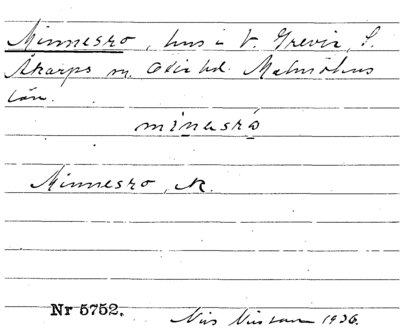 Minnesro, hus i V. Grevie, S.
Åkarps sn. Oxie hd. Malmöhus
län.
minəsrɷ
Minnesro, N.
Nr 5752.
Nils Nilsson 1936.